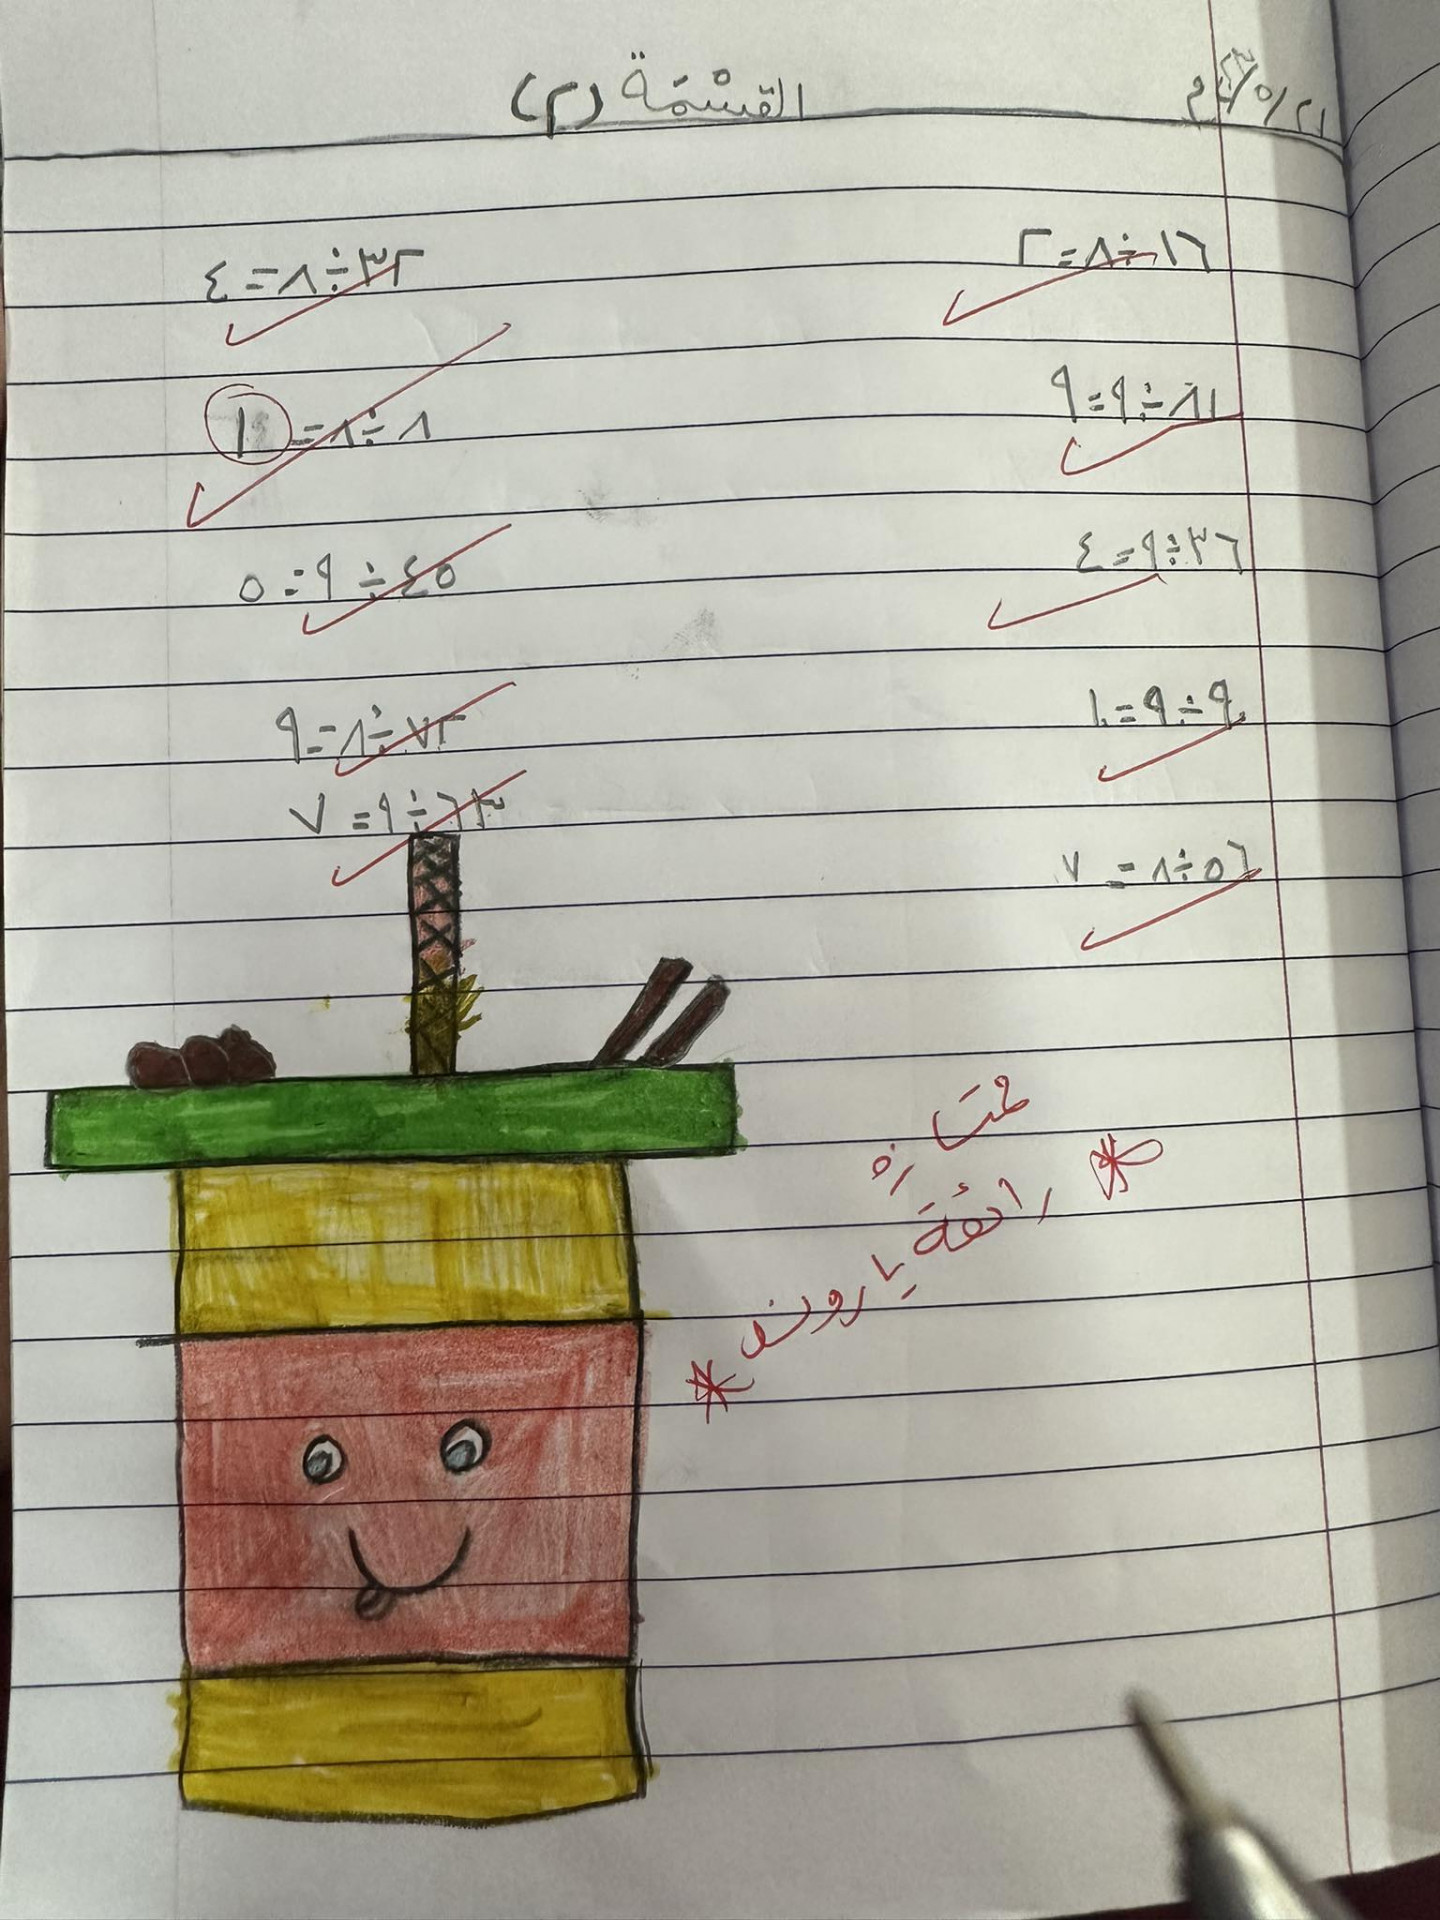 القسْمَة (٢)
١٦÷٨=٢
٨١÷٩=٩
٣٦÷٩=٤
٩÷٩=١
٥٦÷٨=٧
٣٢÷٨=٤
٨÷٨=١
٤٥÷٩=٥
٧٢÷٨=٩
٦٣÷٩=٧
ممتازة
رائعة
يا روند